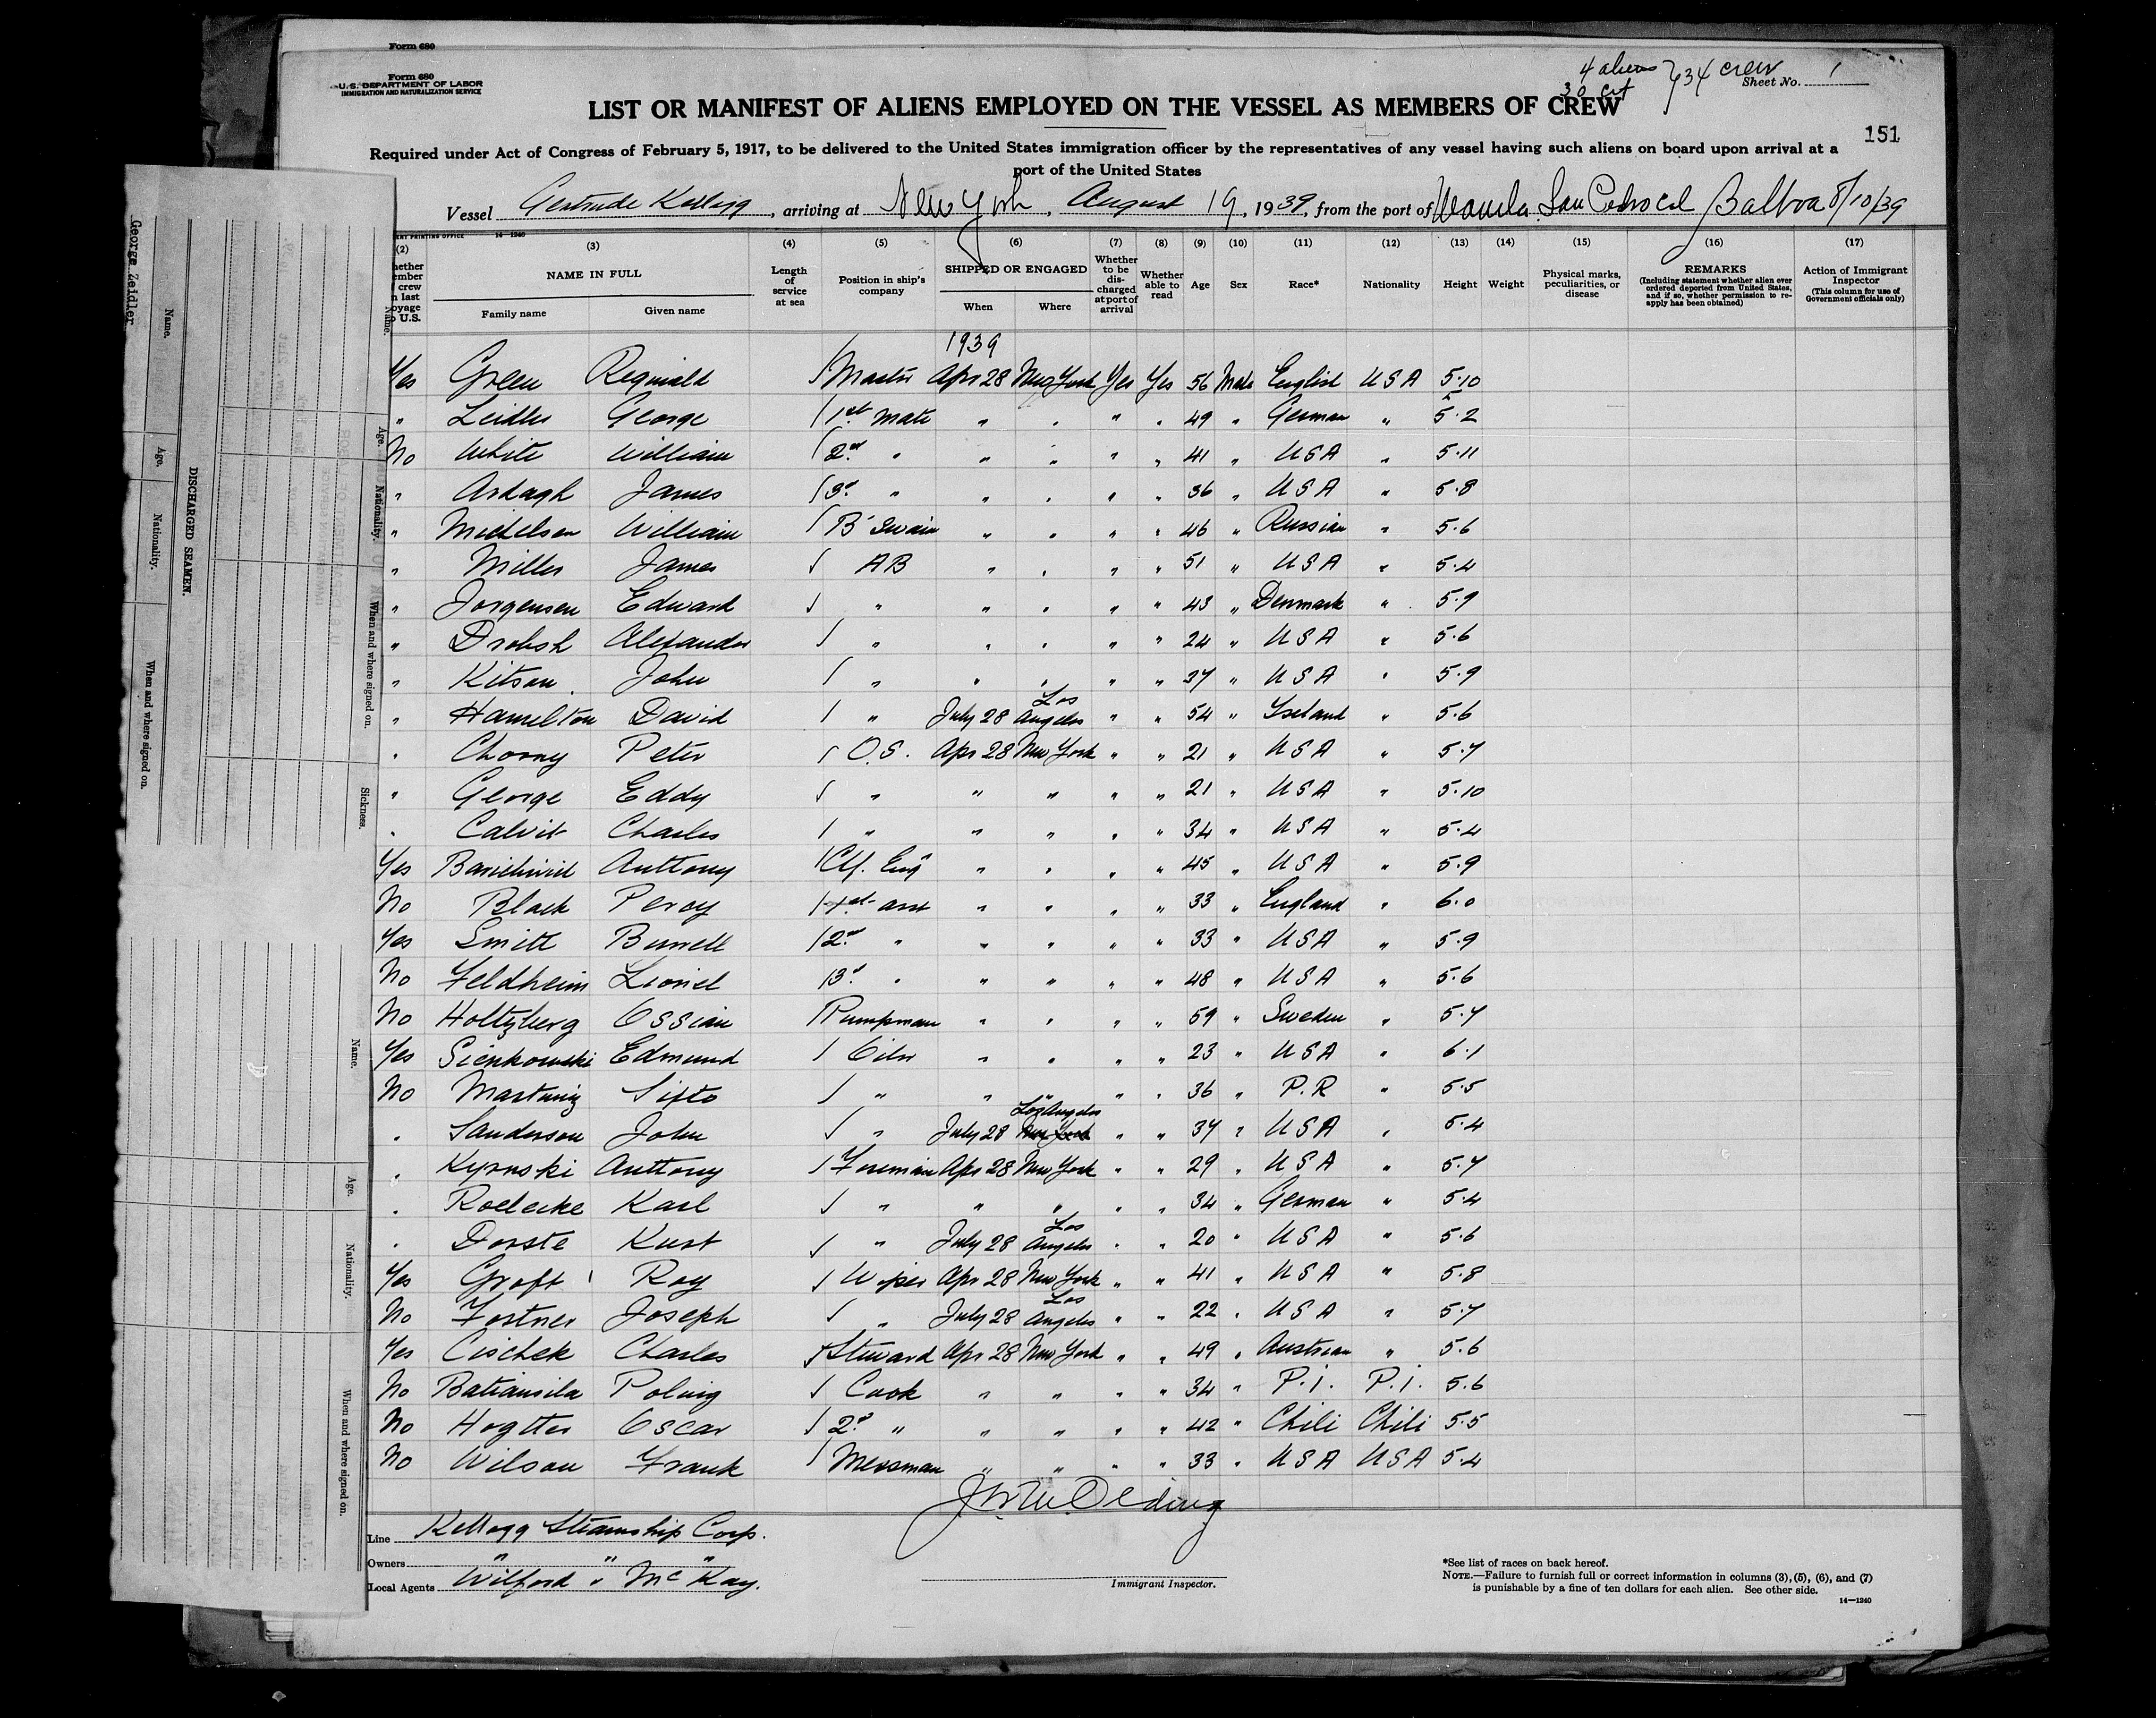 Form 680
Form 680
U.S. DEPARTMENT OF LABOR
IMMIGRATION AND NATURALIZATION SERVICE
4 aliens
30 cit } 34 crew
Sheet No. 1
LIST OR MANIFEST OF ALIENS EMPLOYED ON THE VESSEL AS MEMBERS OF CREW
151
Required under Act of Congress of February 5, 1917, to be delivered to the United States immigration officer by the representatives of any vessel having such aliens on board upon arrival at a
port of the United States
Vessel Gertrude Kellogg, arriving at New York, August 19, 1939, from the port of Manila San Pedro Cal Balboa 8/10/39
14—1240
(2) (3) (4) (5) (6) (7) (8) (9) (10) (11) (12) (13) (14) (15) (16) (17)
NAME IN FULL
Family name Given name
Length of service at sea
Position in ship's company
SHIPPED OR ENGAGED
When Where
Whether to be discharged at port of arrival
Whether able to read
Age
Sex
Race*
Nationality
Height
Weight
Physical marks, peculiarities, or disease
REMARKS
(Including statement whether alien ever ordered deported from United States, and if so, whether permission to reapply has been obtained)
Action of Immigrant Inspector
(This column for use of Government officials only)
1939
Yes Green Reginald Master Apr 28 New York Yes Yes 56 Male English USA 5.10
" Zeidler George 1st Mate " " " " 49 " German " 5.2
No White William 2nd " " " " " 41 " USA " 5.11
" Ardagh James 3d " " " " " 36 " USA " 5.8
" Michelsen William B'Swain " " " " 46 " Russian " 5.6
" Miller James AB " " " " 51 " USA " 5.4
" Jorgensen Edward " " " " " 43 " Denmark " 5.9
" Drobsh Alexander " " " " " 24 " USA " 5.6
" Kitson John " " " " " 37 " USA " 5.9
" Hamelton David " July 28 Los Angeles " " 54 " " 5.6
" Chorny Peter O.S. Apr 28 New York " " 21 " USA " 5.7
" George Eddy " " " " " 21 " USA " 5.10
" Calvit Charles " " " " " 34 " USA " 5.4
Yes Anthony Chf. Eng " " " " 45 " USA " 5.9
No Black Percy 1st asst " " " " 33 " England " 6.0
Yes Smith Burrell 2nd " " " " " 33 " USA " 5.9
No Feldheim Lionel 3d " " " " " 48 " USA " 5.6
No Holtzberg Ossian Pumpman " " " " 59 " Sweden " 5.7
Yes Sienkowski Edmund Oiler " " " " 23 " USA " 6.1
No Martiniz Sixto " " " " " 36 " P.R " 5.5
" Sanderson John " July 28 Los Angeles New York " " 37 " USA " 5.4
" Kyrnski Anthony Fireman Apr 28 New York " " 29 " USA " 5.7
" Roelecke Karl " " " " " 34 " German " 5.4
" Dorste Kurt " July 28 Los Angeles " " 20 " USA " 5.6
Yes Groft Roy Wiper Apr 28 New York " " 41 " USA " 5.8
No Fortner Joseph " July 28 Los Angeles " " 22 " USA " 5.7
Yes Cischek Charles Steward Apr 28 New York " " 49 " Austrian " 5.6
No Batiansila Cook " " " " 34 " P.I. P.I. 5.6
No Oscar 2d " " " " " 42 " Chili Chili 5.5
No Wilson Frank Messman " " " " 33 " USA USA 5.4
Line Kellogg Steamship Corp.
Owners " " "
Local Agents Wilford & McKay.
Immigrant Inspector.
*See list of races on back hereof.
NOTE.—Failure to furnish full or correct information in columns (3), (5), (6), and (7)
is punishable by a fine of ten dollars for each alien. See other side.
14—1240
George Zeidler
Name.
Age.
Nationality.
When and where signed on.
DISCHARGED SEAMEN.
Name.
Age.
Nationality.
When and where signed on.
Sickness.
Name.
Age.
Nationality.
When and where signed on.